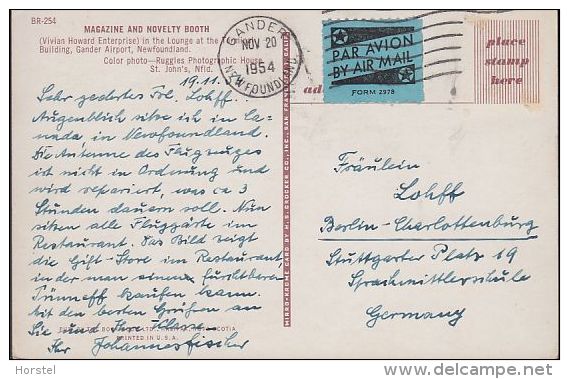 BR-254
MAGAZINE AND NOVELTY BOOTH
(Vivian Howard Enterprise) in the Lounge at the
Building, Gander Airport, Newfoundland.
Color photo—Ruggles Photographic House
St. John's, Nfld.
GANDER
NOV 20
1954
NEWFOUNDLAND
PAR AVION
BY AIR MAIL
FORM 2978
place
stamp
here
ad
19.11.
Sehr geehrtes Frl. Lohff.
Augenblicklich sitze ich in Ca-
nada in Newfoundland.
Die Antenne des Flugzeuges
ist nicht in Ordnung und
wird repariert, was ca 3
Stunden dauern soll. Nun
sitzen alle Fluggäste im
Restaurant. Das Bild zeigt
die Gift-Store im Restaurant
in der man einen furchtbaren
kaufen kann.
Mit den besten Grüßen an
Sie und Ihre Klasse
Ihr Johannes Fischer
PRINTED IN U.S.A.
MIRRO-KROME CARD BY H. S. CROCKER CO., INC., SAN FRANCISCO, CALIF.
Fräulein
Lohff
Berlin-Charlottenburg
Stuttgarter Platz 19
Sprachmittlerschule
Germany
delcampe.net